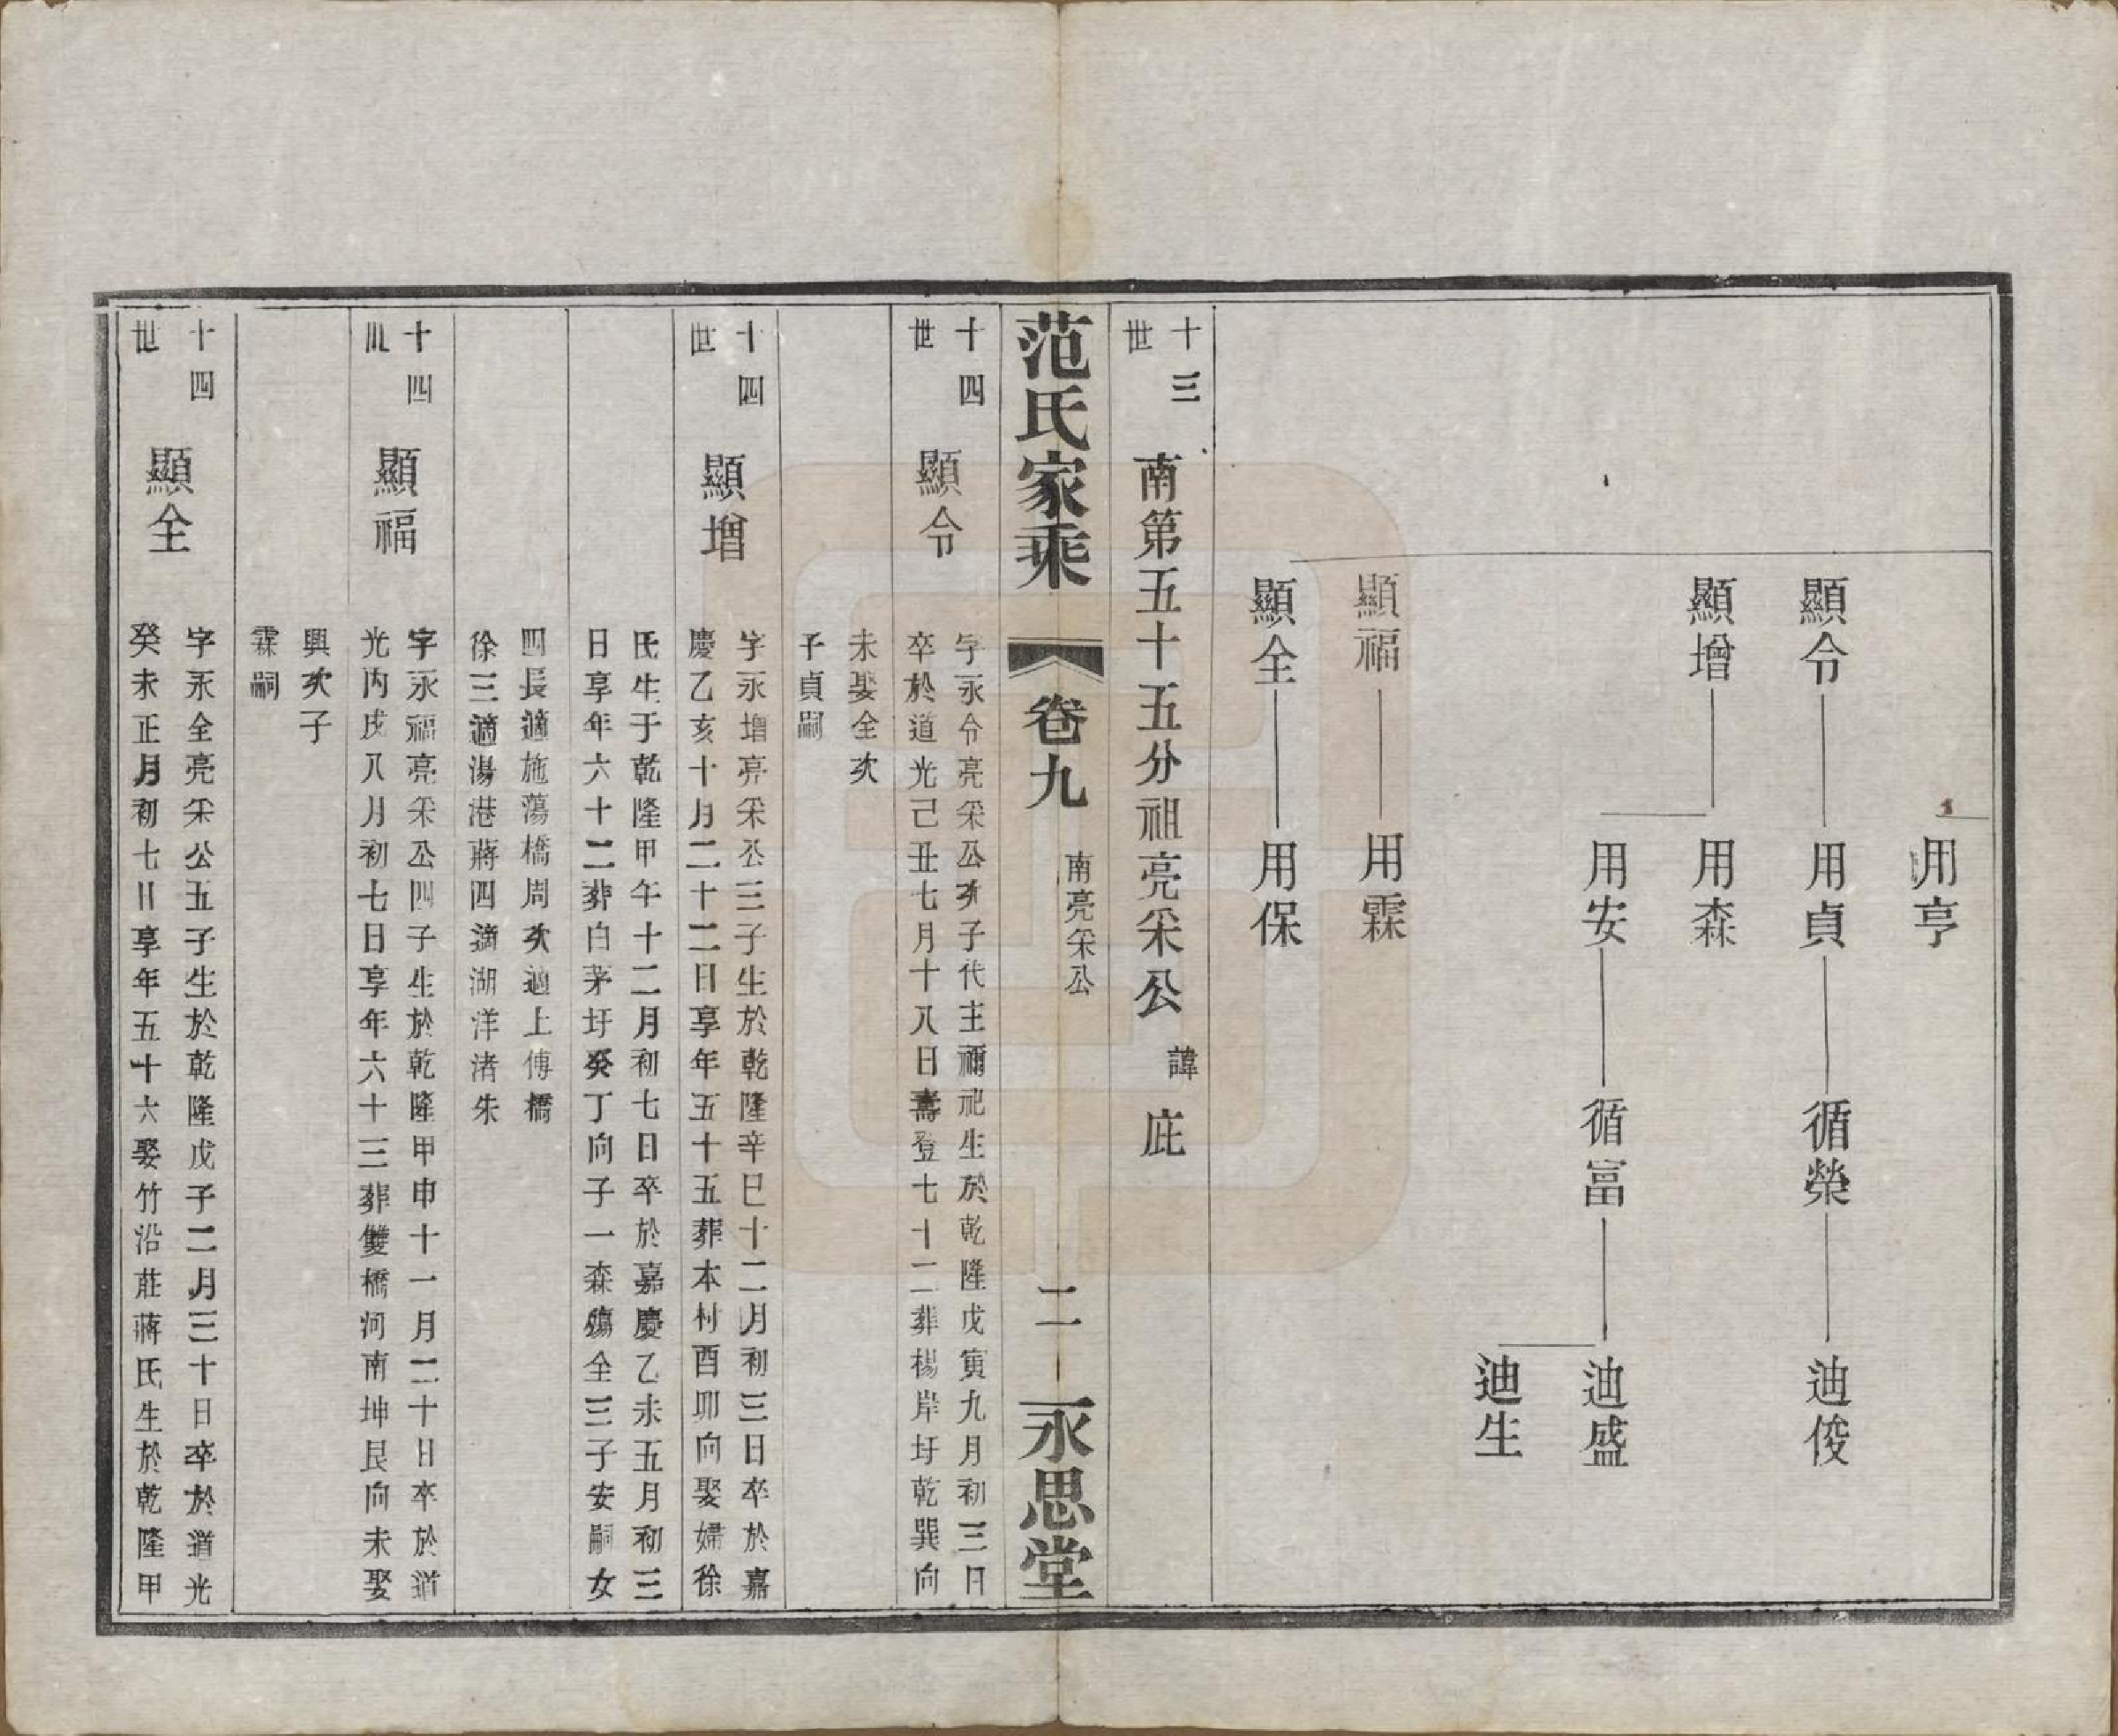 用亨
顯令 用貞 循榮 迪俊
顯增 用森
用安 循富 迪盛
迪生
顯福 用霖
顯全 用保
十三世 南第五十五分祖亮采公 諱 庇
范氏家乘 卷九 南亮采公 二 永思堂
十四世 顯令
字永令亮采公次子代主禰祀生於乾隆戊寅九月初三日
卒於道光己丑七月十八日壽登七十二葬楊岸圩乾巽向
未娶全次
子貞嗣
十四世 顯增
字永增亮采公三子生於乾隆辛巳十二月初三日卒於嘉
慶乙亥十月二十二日享年五十五葬本村酉卯向娶婦徐
氏生于乾隆甲午十二月初七日卒於嘉慶乙未五月初三
日享年六十二葬白茅圩癸丁向子一森殤全三子安嗣女
四長適施蕩橋周次適上傅橋
徐三適湯港蔣四適湖洋渚朱
十四世 顯福
字永福亮采公四子生於乾隆甲申十一月二十日卒於道
光丙戌八月初七日享年六十三葬雙橋河南坤艮向未娶
興次子
霖嗣
十四世 顯全
字永全亮采公五子生於乾隆戊子二月三十日卒於道光
癸未正月初七日享年五十六娶竹沿莊蔣氏生於乾隆甲